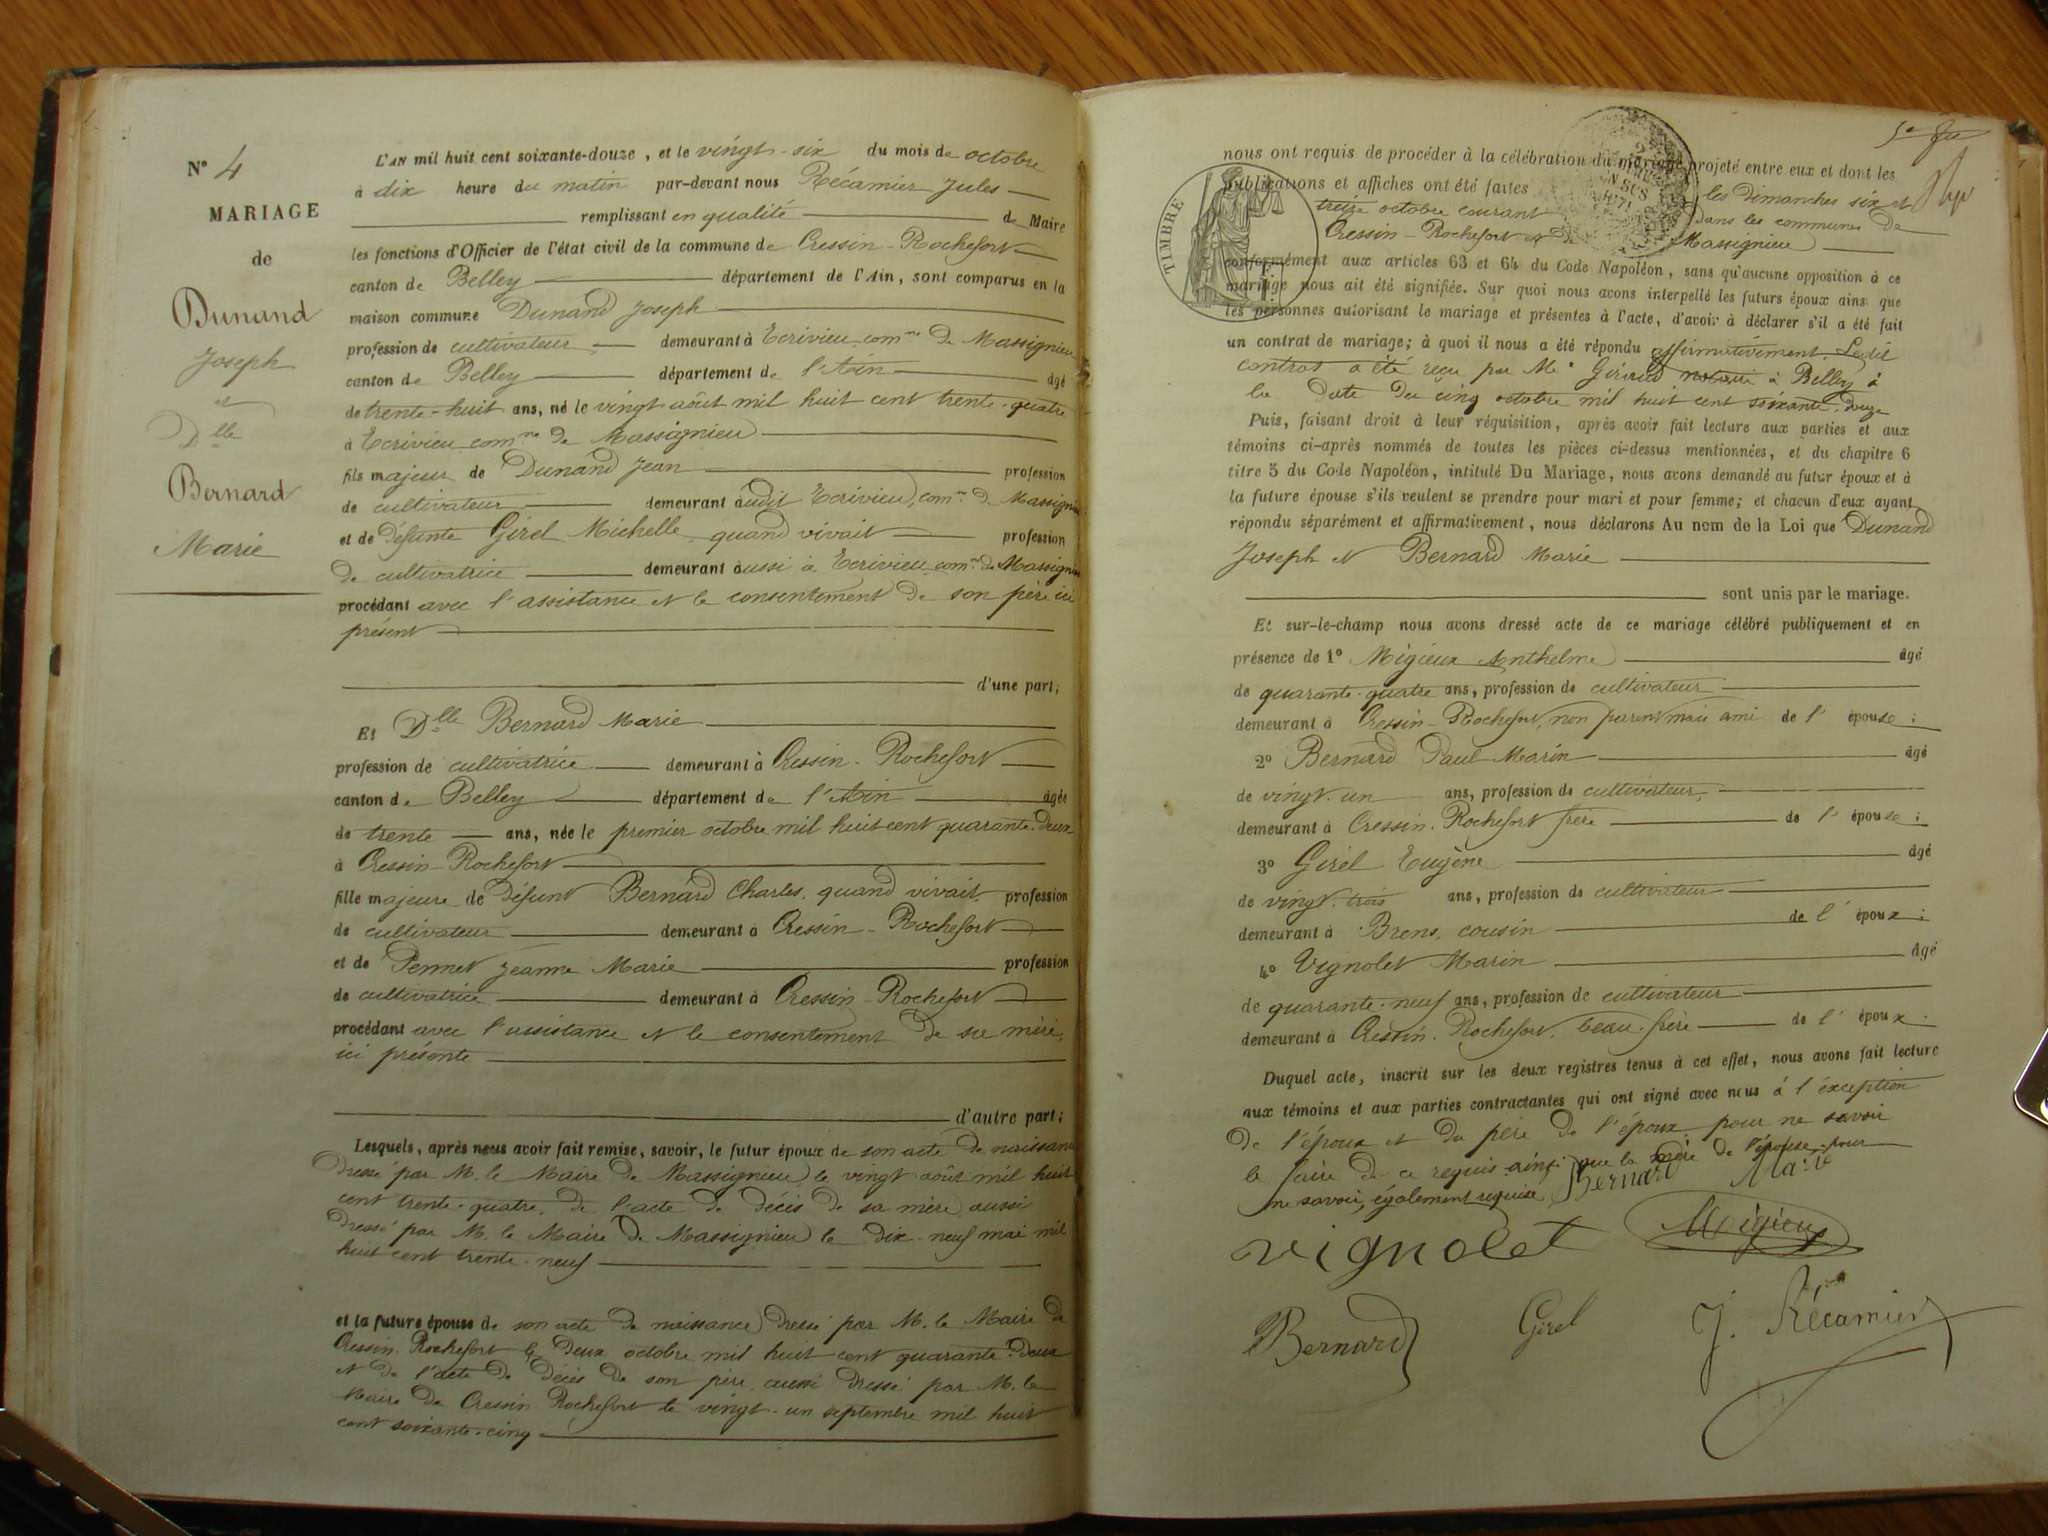 N° 4
MARIAGE
de
Dunand
Joseph
et
Dlle
Bernard
Marie
L'AN mil huit cent soixante-douze, et le vingt-six du mois de octobre
à dix heure du matin par-devant nous Récamier Jules
remplissant en qualité de Maire
les fonctions d'Officier de l'état civil de la commune de Cressin-Rochefort
canton de Belley département de l'Ain, sont comparus en la
maison commune Dunand Joseph
profession de cultivateur demeurant à Ecrivieu, comne de Massignieu
canton de Belley département de l'Ain âgé
de trente-huit ans, né le vingt août mil huit cent trente-quatre
à Ecrivieu comne de Massignieu
fils majeur de Dunand Jean profession
de cultivateur demeurant audit Ecrivieu, comne de Massignieu
et de défunte Girel Michelle quand vivait profession
de cultivatrice demeurant aussi à Ecrivieu comne de Massignieu
procédant avec l'assistance et le consentement de son père ici
présent
d'une part;
Et Dlle Bernard Marie
profession de cultivatrice demeurant à Cressin-Rochefort
canton de Belley département de l'Ain âgée
de trente ans, née le premier octobre mil huit cent quarante-deux
à Cressin-Rochefort
fille majeure de défunt Bernard Charles, quand vivait, profession
de cultivateur demeurant à Cressin-Rochefort
et de Pennet Jeanne Marie profession
de cultivatrice demeurant à Cressin-Rochefort
procédant avec l'assistance et le consentement de sa mère,
ici présente
d'autre part;
Lesquels, après nous avoir fait remise, savoir, le futur époux de son acte de naissance
dressé par M. le Maire de Massignieu le vingt août mil huit
cent trente-quatre, de l'acte de décès de sa mère, aussi
dressé par M. le Maire de Massignieu le dix-neuf mai mil
huit cent trente-neuf
et la future épouse de son acte de naissance dressé par M. le Maire de
Cressin-Rochefort le deux octobre mil huit cent quarante-deux
et de l'acte de décès de son père, aussi dressé par M. le
Maire de Cressin-Rochefort le vingt-un septembre mil huit
cent soixante-cinq
nous ont requis de procéder à la célébration du mariage projeté entre eux et dont les
publications et affiches ont été faites les dimanches six et
treize octobre courant dans les communes de
Cressin-Rochefort et de Massignieu
TIMBRE
conformément aux articles 63 et 64 du Code Napoléon, sans qu'aucune opposition à ce
mariage nous ait été signifiée. Sur quoi nous avons interpellé les futurs époux ainsi que
les personnes autorisant le mariage et présentes à l'acte, d'avoir à déclarer s'il a été fait
un contrat de mariage; à quoi il nous a été répondu affirmativement. Ledit
contrat a été reçu par Me Giraud notaire à Belley à
la date du cinq octobre mil huit cent soixante-douze
Puis, faisant droit à leur réquisition, après avoir fait lecture aux parties et aux
témoins ci-après nommés de toutes les pièces ci-dessus mentionnées, et du chapitre 6
titre 5 du Code Napoléon, intitulé Du Mariage, nous avons demandé au futur époux et à
la future épouse s'ils veulent se prendre pour mari et pour femme; et chacun d'eux ayant
répondu séparément et affirmativement, nous déclarons Au nom de la Loi que Dunand
Joseph et Bernard Marie
sont unis par le mariage.
Et sur-le-champ nous avons dressé acte de ce mariage célébré publiquement et en
présence de 1° Migieux Anthelme âgé
de quarante-quatre ans, profession de cultivateur
demeurant à Cressin-Rochefort, non parent mais ami de l'épouse;
2° Bernard Paul Marin âgé
de vingt-un ans, profession de cultivateur,
demeurant à Cressin-Rochefort frère de l'épouse;
3° Girel Eugène âgé
de vingt-trois ans, profession de cultivateur
demeurant à Brens, cousin de l'époux;
4° Vignolet Marin âgé
de quarante-neuf ans, profession de cultivateur
demeurant à Cressin-Rochefort, beau-frère de l'époux.
Duquel acte, inscrit sur les deux registres tenus à cet effet, nous avons fait lecture
aux témoins et aux parties contractantes qui ont signé avec nous à l'exception
de l'époux et du père de l'époux pour ne savoir
le faire de ce requis ainsi que la mère de l'épouse pour
ne savoir, également requise
Bernard Marie
vignolet Migieux
Bernard Girel J. Récamier